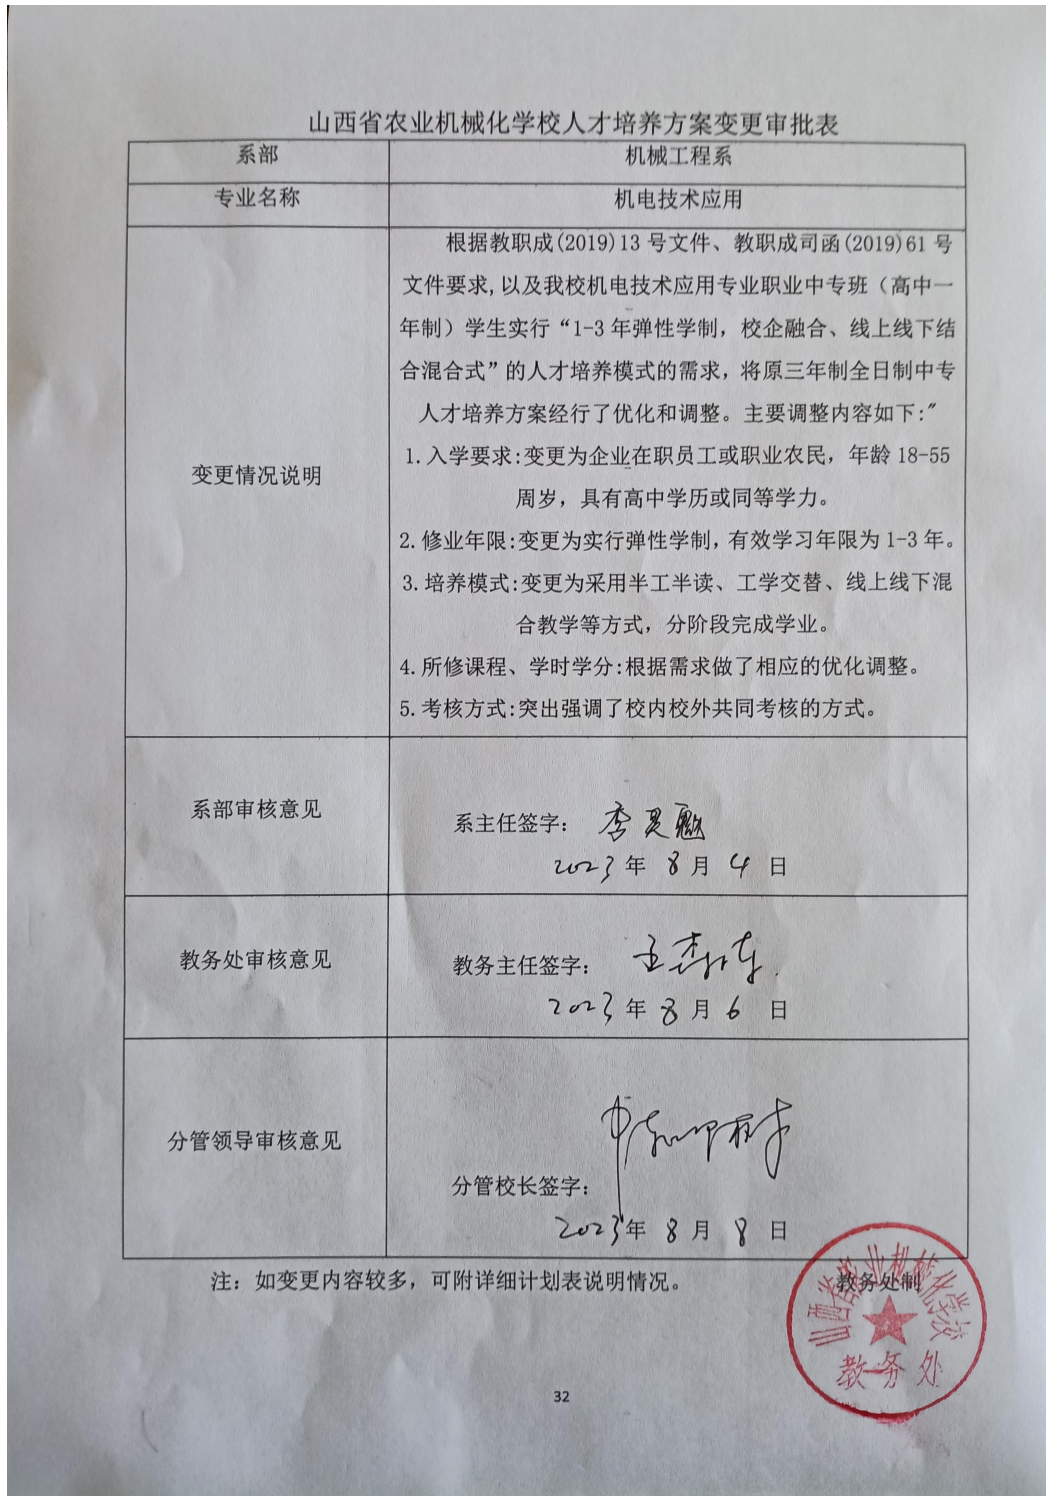 山西省农业机械化学校人才培养方案变更审批表
系部
机械工程系
专业名称
机电技术应用
变更情况说明
根据教职成(2019)13 号文件、教职成司函(2019)61 号
文件要求,以及我校机电技术应用专业职业中专班（高中一
年制）学生实行“1-3 年弹性学制，校企融合、线上线下结
合混合式”的人才培养模式的需求，将原三年制全日制中专
人才培养方案经行了优化和调整。主要调整内容如下:"
1.入学要求:变更为企业在职员工或职业农民，年龄 18-55
周岁，具有高中学历或同等学力。
2.修业年限:变更为实行弹性学制,有效学习年限为 1-3 年。
3.培养模式:变更为采用半工半读、工学交替、线上线下混
合教学等方式，分阶段完成学业。
4.所修课程、学时学分:根据需求做了相应的优化调整。
5.考核方式:突出强调了校内校外共同考核的方式。
系部审核意见
系主任签字：
2023 年 8 月 4 日
教务处审核意见
教务主任签字：
2023 年 8 月 6 日
分管领导审核意见
分管校长签字：
2023 年 8 月 8 日
注：如变更内容较多，可附详细计划表说明情况。
教务处制
山西省农业机械化学校
教务处
32